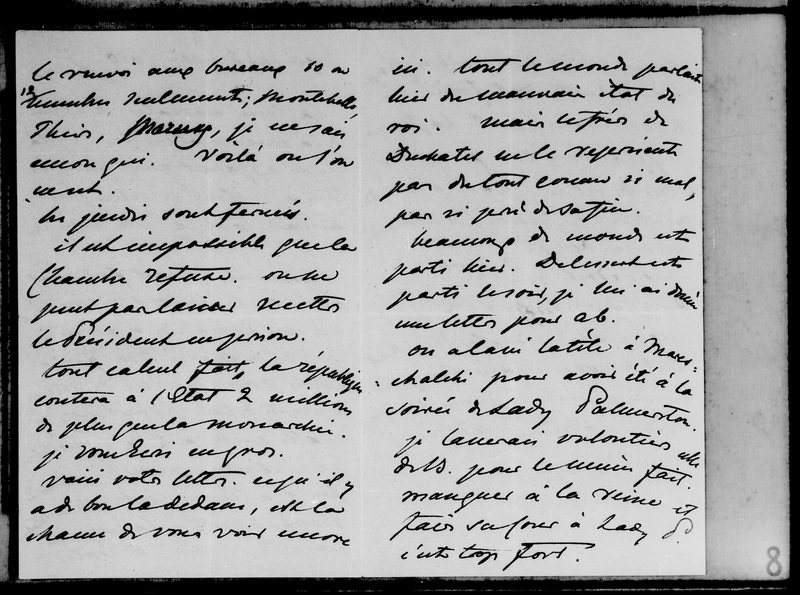 le renvoi aux bureaux 10 ou
12 membres seulement; Montebello,
Thiers, Mornay, je ne sais
encore qui. Voilà où l'on
en est.
les jeudis sont fermés.
il est impossible que la
Chambre refuse. on ne
peut pas laisser mettre
le Président en prison.
tout calcul fait, la république
coutera à l'Etat 2 millions
de plus que la monarchie.
je vous écris en gros.
voici votre lettre. ce qu'il y
a de bon là dedans, c'est la
chance de vous voir encore
ici. tout le monde parlait
hier du mauvais état du
roi. mais le frère de
Duchatel ne le représente
pas du tout comme si mal,
par si près de sa fin.
beaucoup de monde est
parti hier. Delessert est
parti le soir, je lui ai donné
une lettre pour ab.
on a lavé la tête à Mares-
chalchi pour avoir été à la
soirée de Lady Palmerston.
je laverais volontiers celle
de B. pour le même fait.
manquer à la reine et
faire sa cour à Lady P.
c'est trop fort!
8